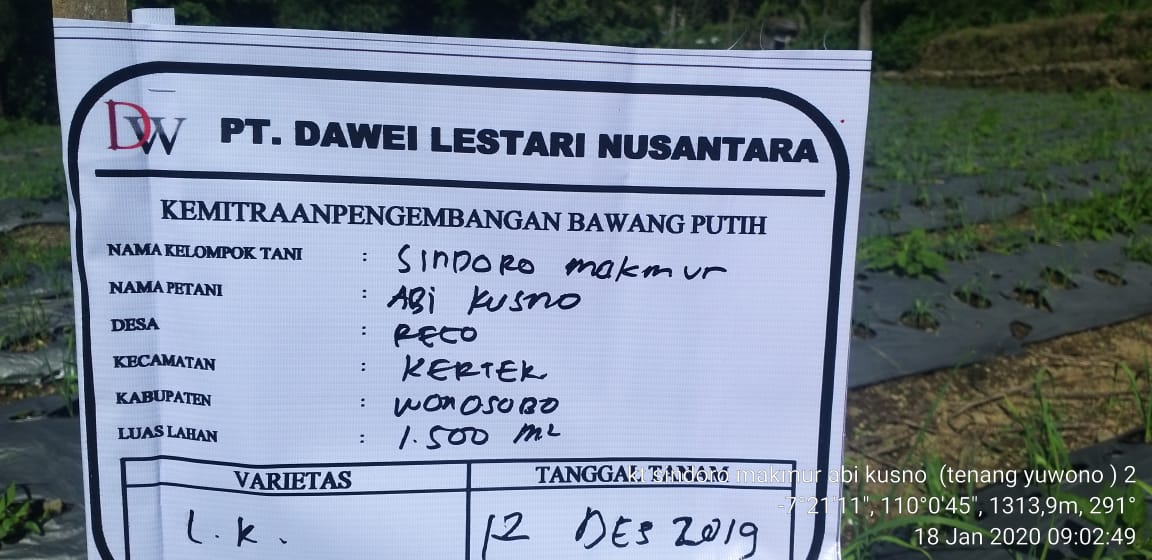 DW PT. DAWEI LESTARI NUSANTARA
KEMITRAANPENGEMBANGAN BAWANG PUTIH
NAMA KELOMPOK TANI : SINDORO makmur
NAMA PETANI : ABi KUSNO
DESA : RECO
KECAMATAN : KERTEK
KABUPATEN : WONOSOBO
LUAS LAHAN : 1.500 m2
VARIETAS TANGGAL TANAM
L.K. 12 DES 2019
kt sindoro makmur abi kusno (tenang yuwono ) 2
-7°21'11", 110°0'45", 1313,9m, 291°
18 Jan 2020 09:02:49